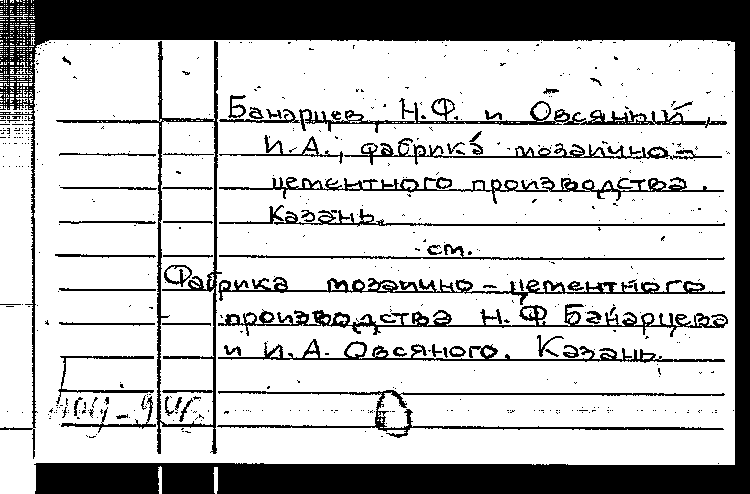 Банарцев, Н.Ф. и Овсяный,
И.А., фабрика мозаично-
цементного производства.
Казань.
см.
Фабрика мозаично-цементного
производства Н.Ф. Банарцева
и И.А. Овсяного. Казань.